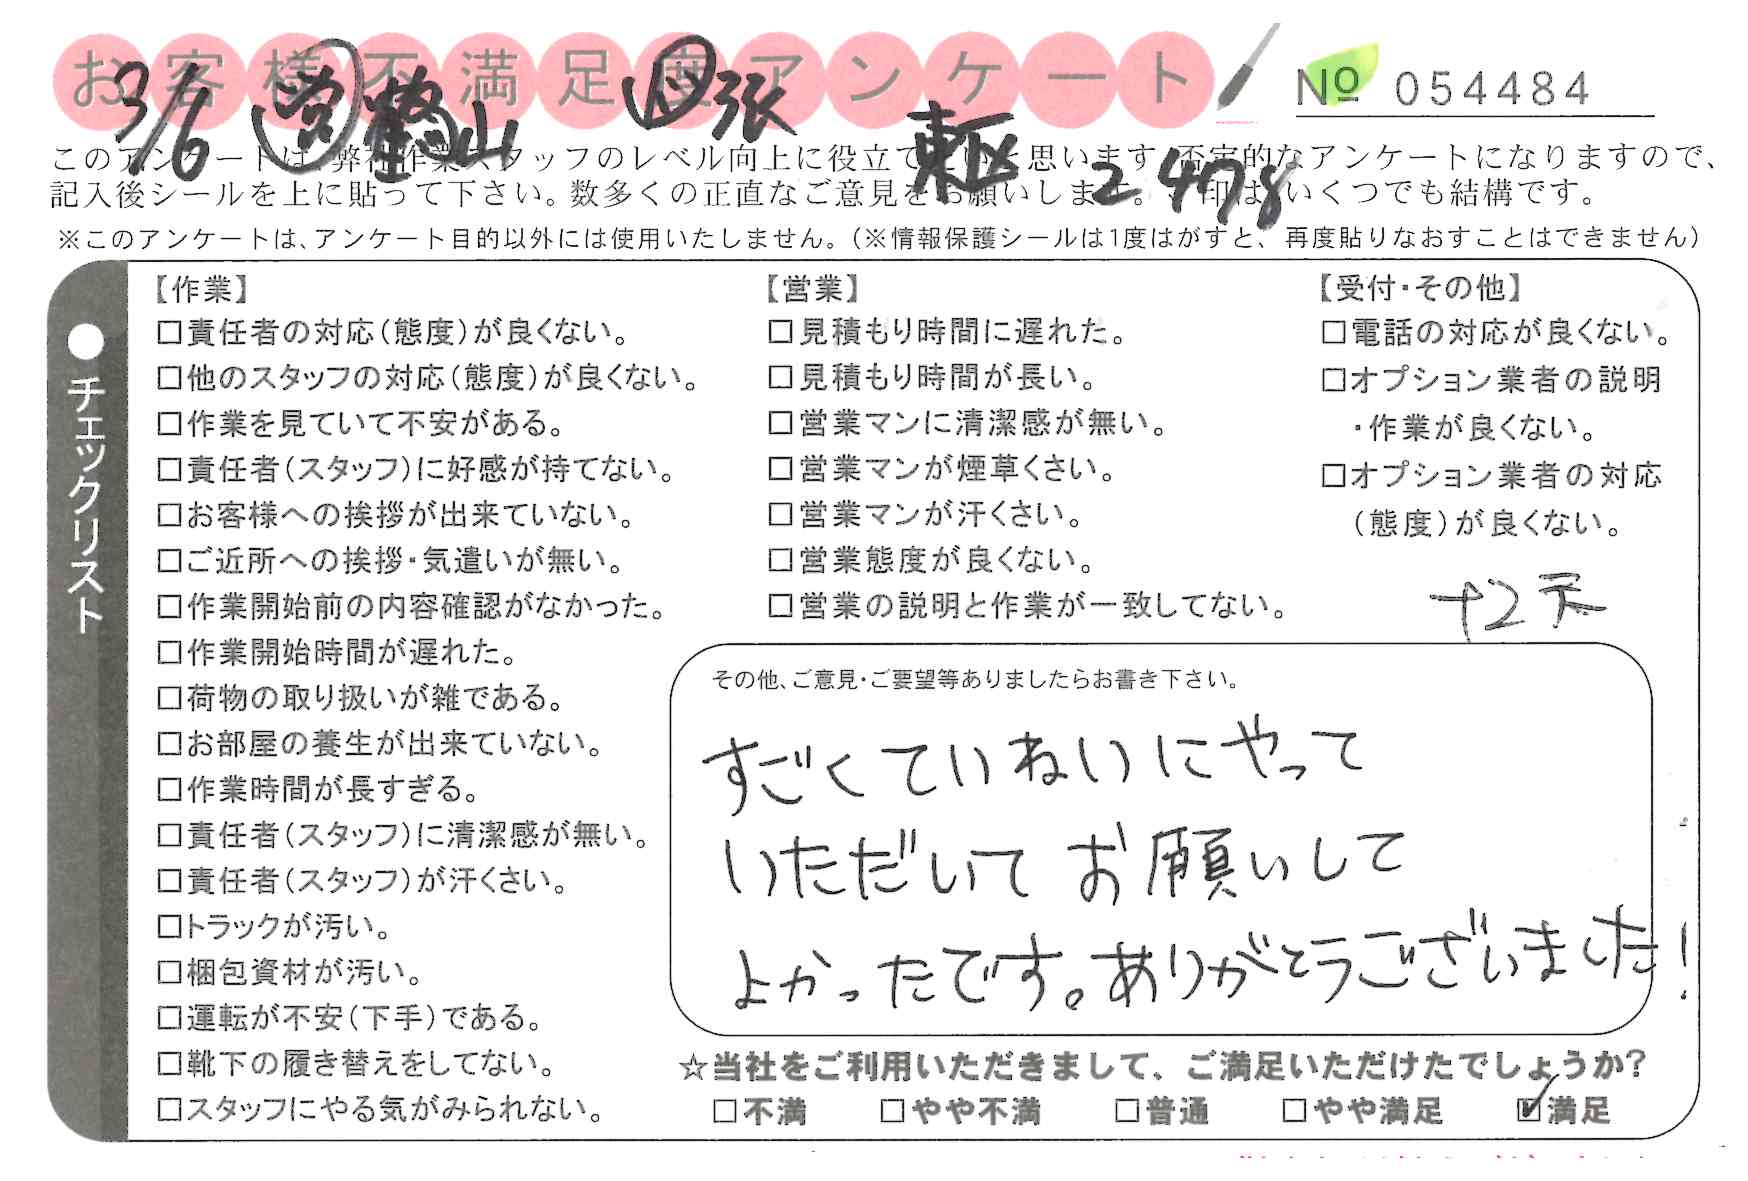 お客様不満足度アンケート
№ 054484
3/6 営 山 張
東区 2478
このアンケートは、弊社作業スタッフのレベル向上に役立てたいと思います。否定的なアンケートになりますので、
記入後シールを上に貼って下さい。数多くの正直なご意見をお願いします。✓印はいくつでも結構です。
※このアンケートは、アンケート目的以外には使用いたしません。(※情報保護シールは1度はがすと、再度貼りなおすことはできません)
●チェックリスト
【作業】
□責任者の対応(態度)が良くない。
□他のスタッフの対応(態度)が良くない。
□作業を見ていて不安がある。
□責任者(スタッフ)に好感が持てない。
□お客様への挨拶が出来ていない。
□ご近所への挨拶・気遣いが無い。
□作業開始前の内容確認がなかった。
□作業開始時間が遅れた。
□荷物の取り扱いが雑である。
□お部屋の養生が出来ていない。
□作業時間が長すぎる。
□責任者(スタッフ)に清潔感が無い。
□責任者(スタッフ)が汗くさい。
□トラックが汚い。
□梱包資材が汚い。
□運転が不安(下手)である。
□靴下の履き替えをしてない。
□スタッフにやる気がみられない。
【営業】
□見積もり時間に遅れた。
□見積もり時間が長い。
□営業マンに清潔感が無い。
□営業マンが煙草くさい。
□営業マンが汗くさい。
□営業態度が良くない。
□営業の説明と作業が一致してない。
【受付・その他】
□電話の対応が良くない。
□オプション業者の説明
・作業が良くない。
□オプション業者の対応
(態度)が良くない。
+2
その他、ご意見・ご要望等ありましたらお書き下さい。
すごくていねいにやって
いただいてお願いして
よかったです。ありがとうございました!
☆当社をご利用いただきまして、ご満足いただけたでしょうか?
□不満 □やや不満 □普通 □やや満足 ☑満足